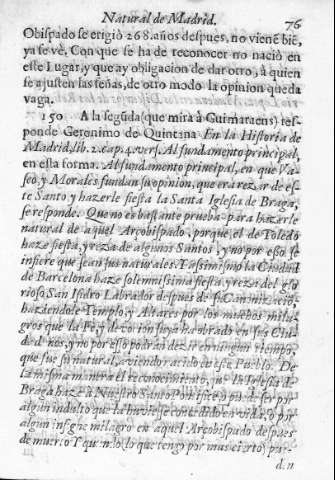 Natural de Madrid. 76
Obispado se erigiò 268. años despues, no viene biē,
ya se vè. Con que se ha de reconocer no nació en
este Lugar, y que ay obligacion de dar otro, à quien
se ajusten las señas, de otro modo la opinion queda
vaga.
150 A la segūda (que mira à Guimaraens) res-
ponde Geronimo de Quintana En la Historia de
Madrid, lib. 2. cap. 4. vers. Al fundamento principal,
en esta forma. Al fundamento principal, en que Va-
seo, y Morales fundan su opinion, que era rezar de es-
te Santo y hazerle fiesta la Santa Iglesia de Braga,
se responde. Que no es bastante prueba para hazerle
natural de aquel Arçobispado, porque el de Toledo
haze fiesta, y reza de algunos Santos, y no por esso se
infiere que sean sus naturales. Y assimismo la Ciudad
de Barcelona haze solemnissima fiesta, y reza del glo
rioso San Isidro Labrador despues de su Canonizaciō,
haziendole Templo, y Altares por los muchos mila-
gros que la Fè, y devocion suya ha obrado en sus Ciu-
dadanos, y no por esso podràn dezir en ningun tiempo,
que fue su natural, aviendo nacido en este Pueblo. De
la misma manera el reconocimiento, que la Iglesia de
Braga haze à Nuestro Santo Pontifice puede ser por
algun indulto que la huviesse concedido en vida, o por
algun insigne milagro en aquel Arçobispado despues
de muerto Y aun (lo que tengo por mas cierto) pu-